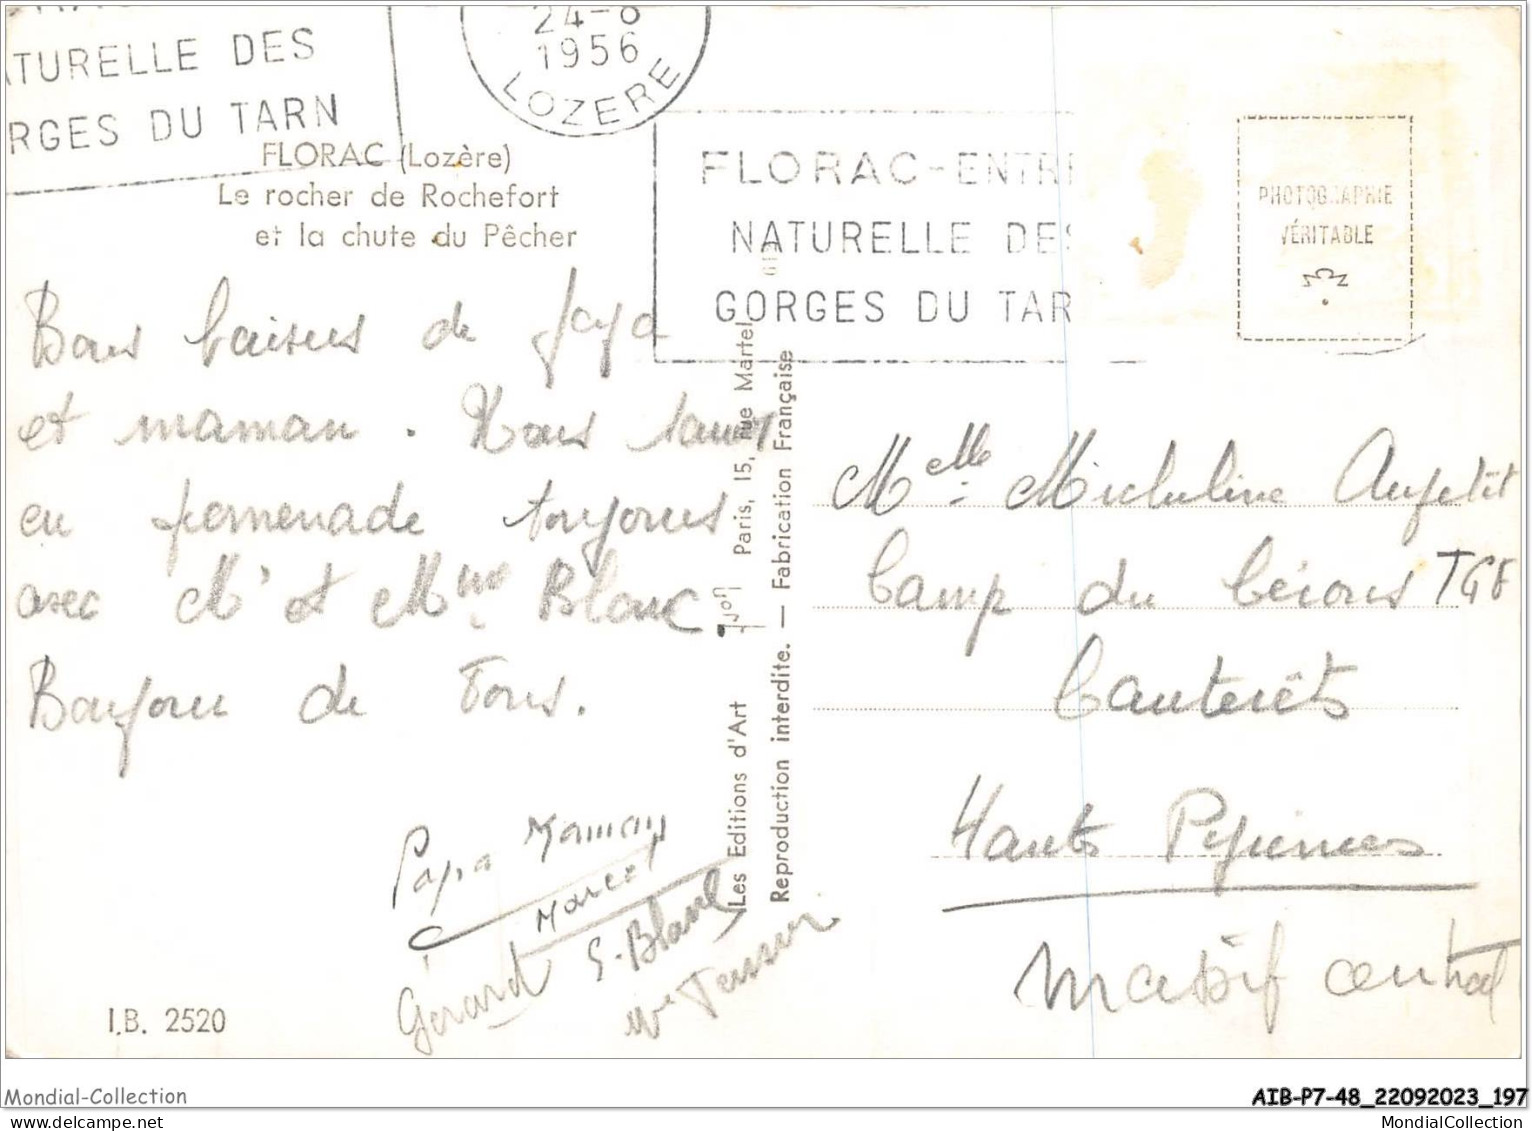 ATURELLE DES
RGES DU TARN
24-8
1956
LOZERE
FLORAC-ENTR
NATURELLE DES
GORGES DU TAR
PHOTOGRAPHIE
VÉRITABLE
FLORAC (Lozère)
Le rocher de Rochefort
et la chute du Pêcher
Bons baisers de papa
et maman. Nous sommes
en promenade toujours
avec Mr et Mme Blanc.
Bonjour de Tous.
Papa Maman
Marcel
Gérard G. Blanc
Les Editions d'Art Paris, 15, rue Martel
Reproduction interdite. — Fabrication Française
Melle Micheline Aupetit
Camp du
Cauterêts
Hautes Pyrénées
massif central
I.B. 2520
Mondial-Collection
AIB-P7-48_22092023_197
MondialCollection